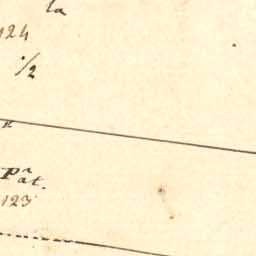 la
124
1/2
Pⁿ
at.
123